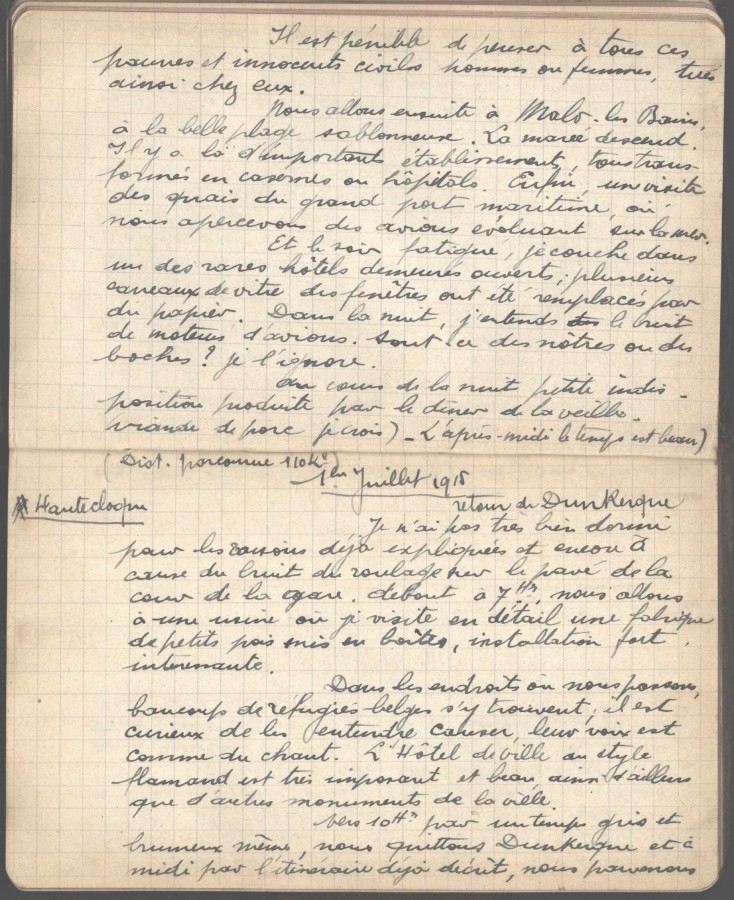 Il est pénible de penser à tous ces
pauvres et innocents civils hommes ou femmes, tués
ainsi chez eux.
Nous allons ensuite à Malo-les Bains,
à la belle plage sablonneuse. La marée descend.
Il y a là d'importants établissements, tous trans-
formés en casernes ou hôpitals. Enfin, une visite
des quais du grand port maritime, où
nous apercevons des avions évoluant sur la mer.
Et le soir fatigué, je couche dans
un des rares hôtels demeurés ouverts; plusieurs
carreaux de vitre des fenêtres ont été remplacés par
du papier. Dans la nuit, j'entends le bruit
de moteurs d'avions. Sont-ce des nôtres ou des
boches? je l'ignore.
Au cours de la nuit petite indis-
position produite par le dîner de la veille.
viande de porc je crois) - L'après-midi le temps est beau)
(Dist. parcourue 110 Km)
1er Juillet 1915
Hautecloque
retour de Dunkerque
Je n'ai pas très bien dormi
pour les raisons déjà expliquées et encore à
cause du bruit du roulage sur le pavé de la
cour de la gare. debout à 7Hrs, nous allons
à une usine où je visite en détail une fabrique
de petits pois mis en boîtes, installation fort
intéressante.
Dans les endroits où nous passons,
beaucoup de réfugiés belges s'y trouvent; il est
curieux de les entendre causer, leur voix est
comme du chant. L'Hôtel de ville au style
flamand est très imposant et beau, ainsi d'ailleurs
que d'autres monuments de la ville.
Vers 10Hrs par un temps gris et
brumeux même, nous quittons Dunkerque et à
midi par l'itinéraire déjà décrit, nous parvenons